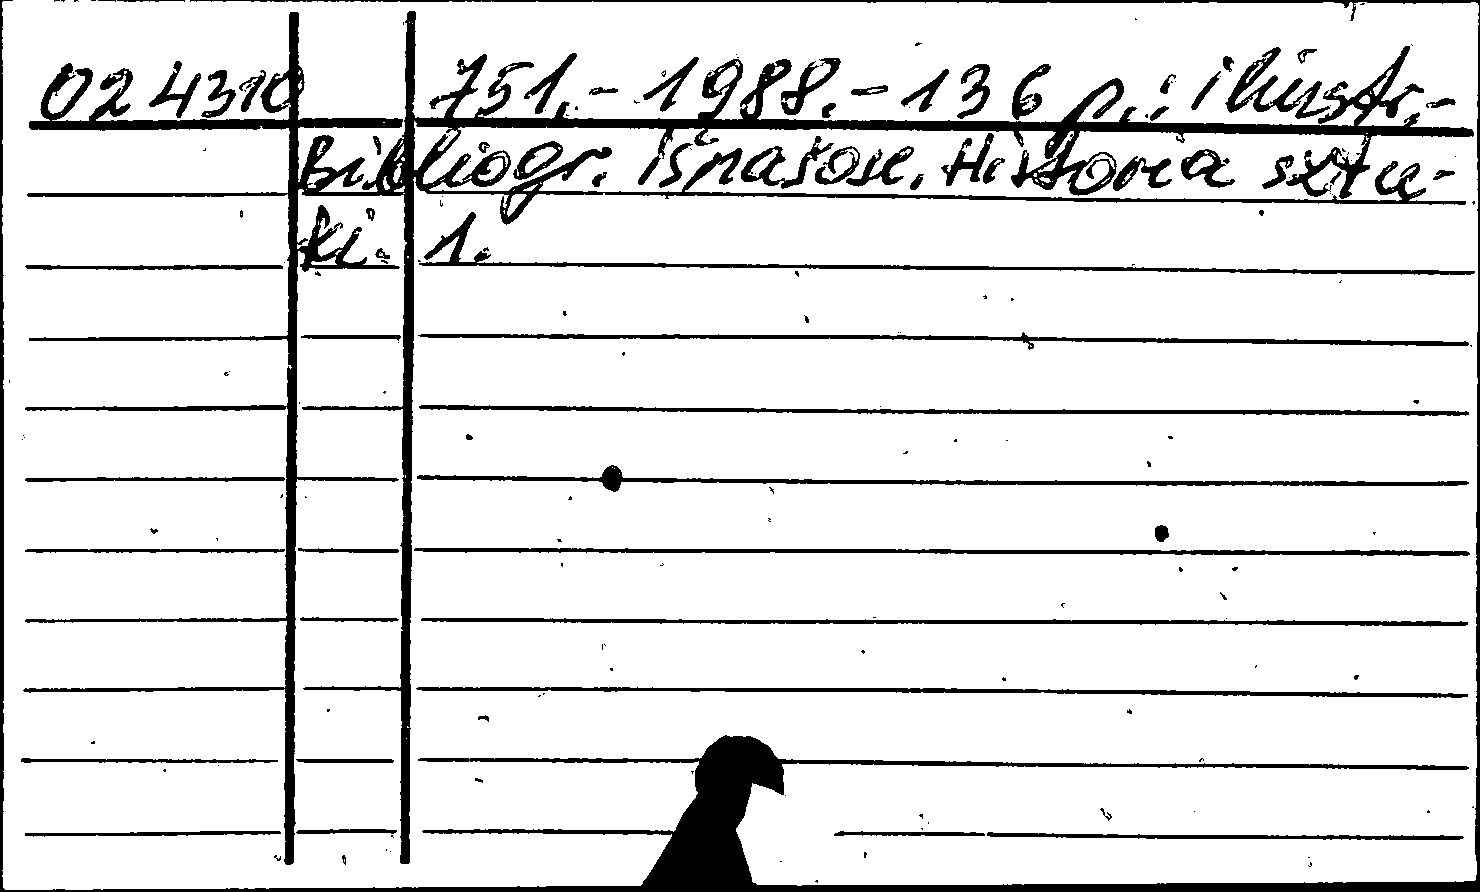 024310 751.- 1988.- 136 p.: iliustr.-
Bibliogr. išnašose. Historia sztu-
ki. 1.